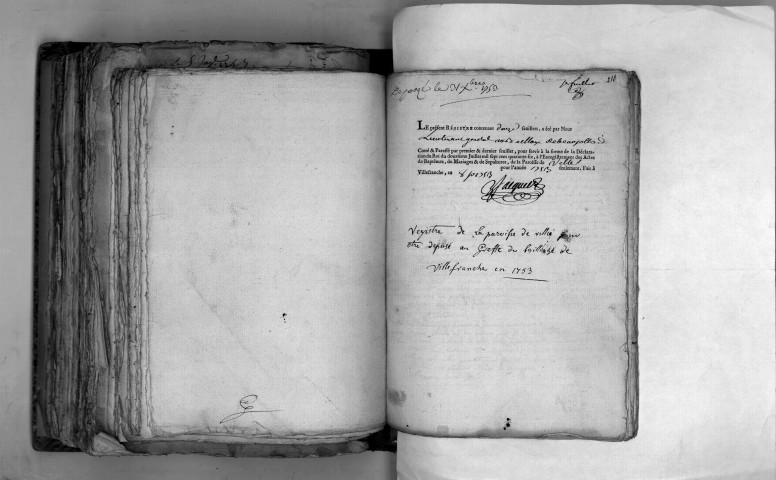 le 31 Xbre 1753
1er feuillet 218
LE présent REGISTRE contenant douze feuillets, a été par Nous
Lieutenant general
Cotté & Paraffé par premier & dernier feuillet, pour servir à la forme de la Déclara-
tion du Roi du douziéme Juillet mil sept cent quarante-six, à l'Enregistrement des Actes
de Baptêmes, de Mariages & de Sepultures, de la Paroisse de Villié
pour l'année 1753 seulement. Fait à
Villefranche, ce
Jacquet
Registre de la paroisse de villié pour
etre deposé au Greffe du bailliage de
Villefranche en 1753